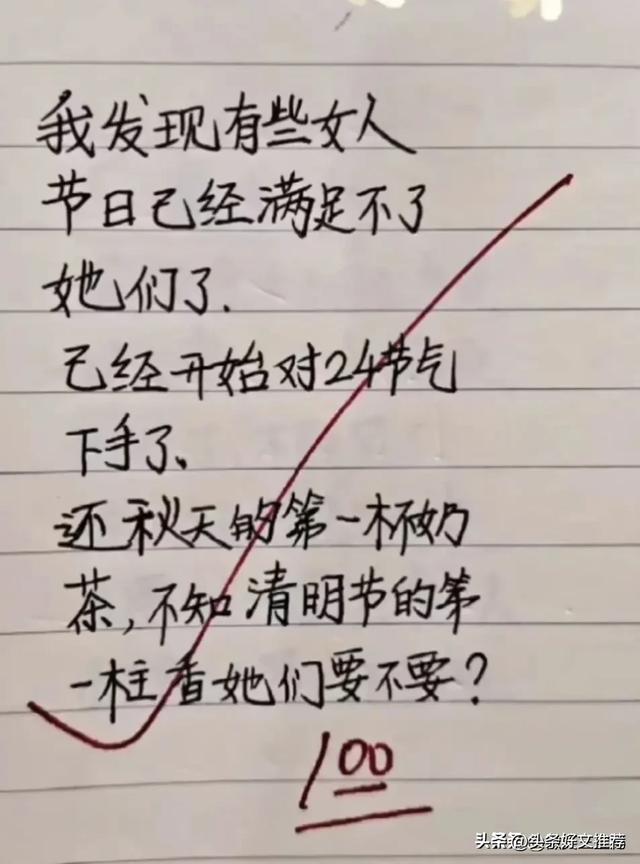 我发现有些女人
节日已经满足不了
她们了.
已经开始对24节气
下手了、
还秋天的第一杯奶
茶,不知清明节的第
一柱香她们要不要?
100
头条@头条好文推荐